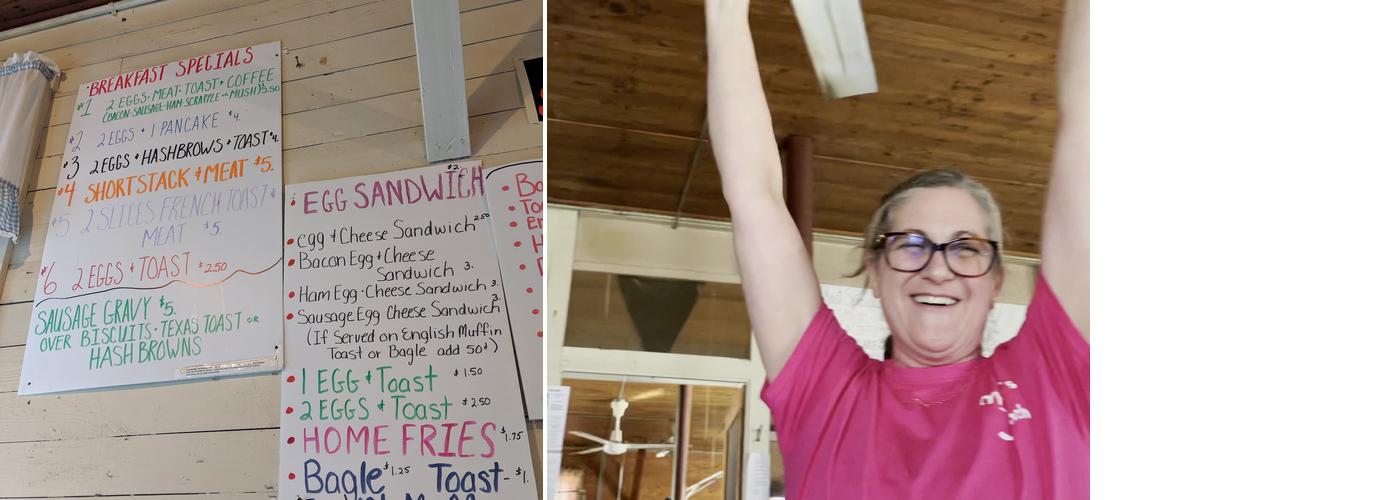 BREAKFAST SPECIALS
#1 2 EGGS-MEAT-TOAST + COFFEE
(BACON-SAUSAGE-HAM-SCRAPPLE OR MUSH) 5.50
#2 2 EGGS + 1 PANCAKE $4.
#3 2 EGGS + HASHBROWS + TOAST $4.
#4 SHORTSTACK + MEAT $5.
#5 2 SLICES FRENCH TOAST +
MEAT $5.
#6 2 EGGS + TOAST $2.50
SAUSAGE GRAVY $5.
OVER BISCUITS-TEXAS TOAST OR
HASH BROWNS
EGG SANDWICH $2.
egg + Cheese Sandwich 2.50
Bacon Egg + Cheese
Sandwich 3.
Ham Egg-Cheese Sandwich 3.
Sausage Egg Cheese Sandwich 3.
(If Served on English Muffin
Toast or Bagle add 50¢)
1 EGG + Toast $1.50
2 EGGS + Toast $2.50
HOME FRIES $1.75
Bagle $1.25 Toast- $1.